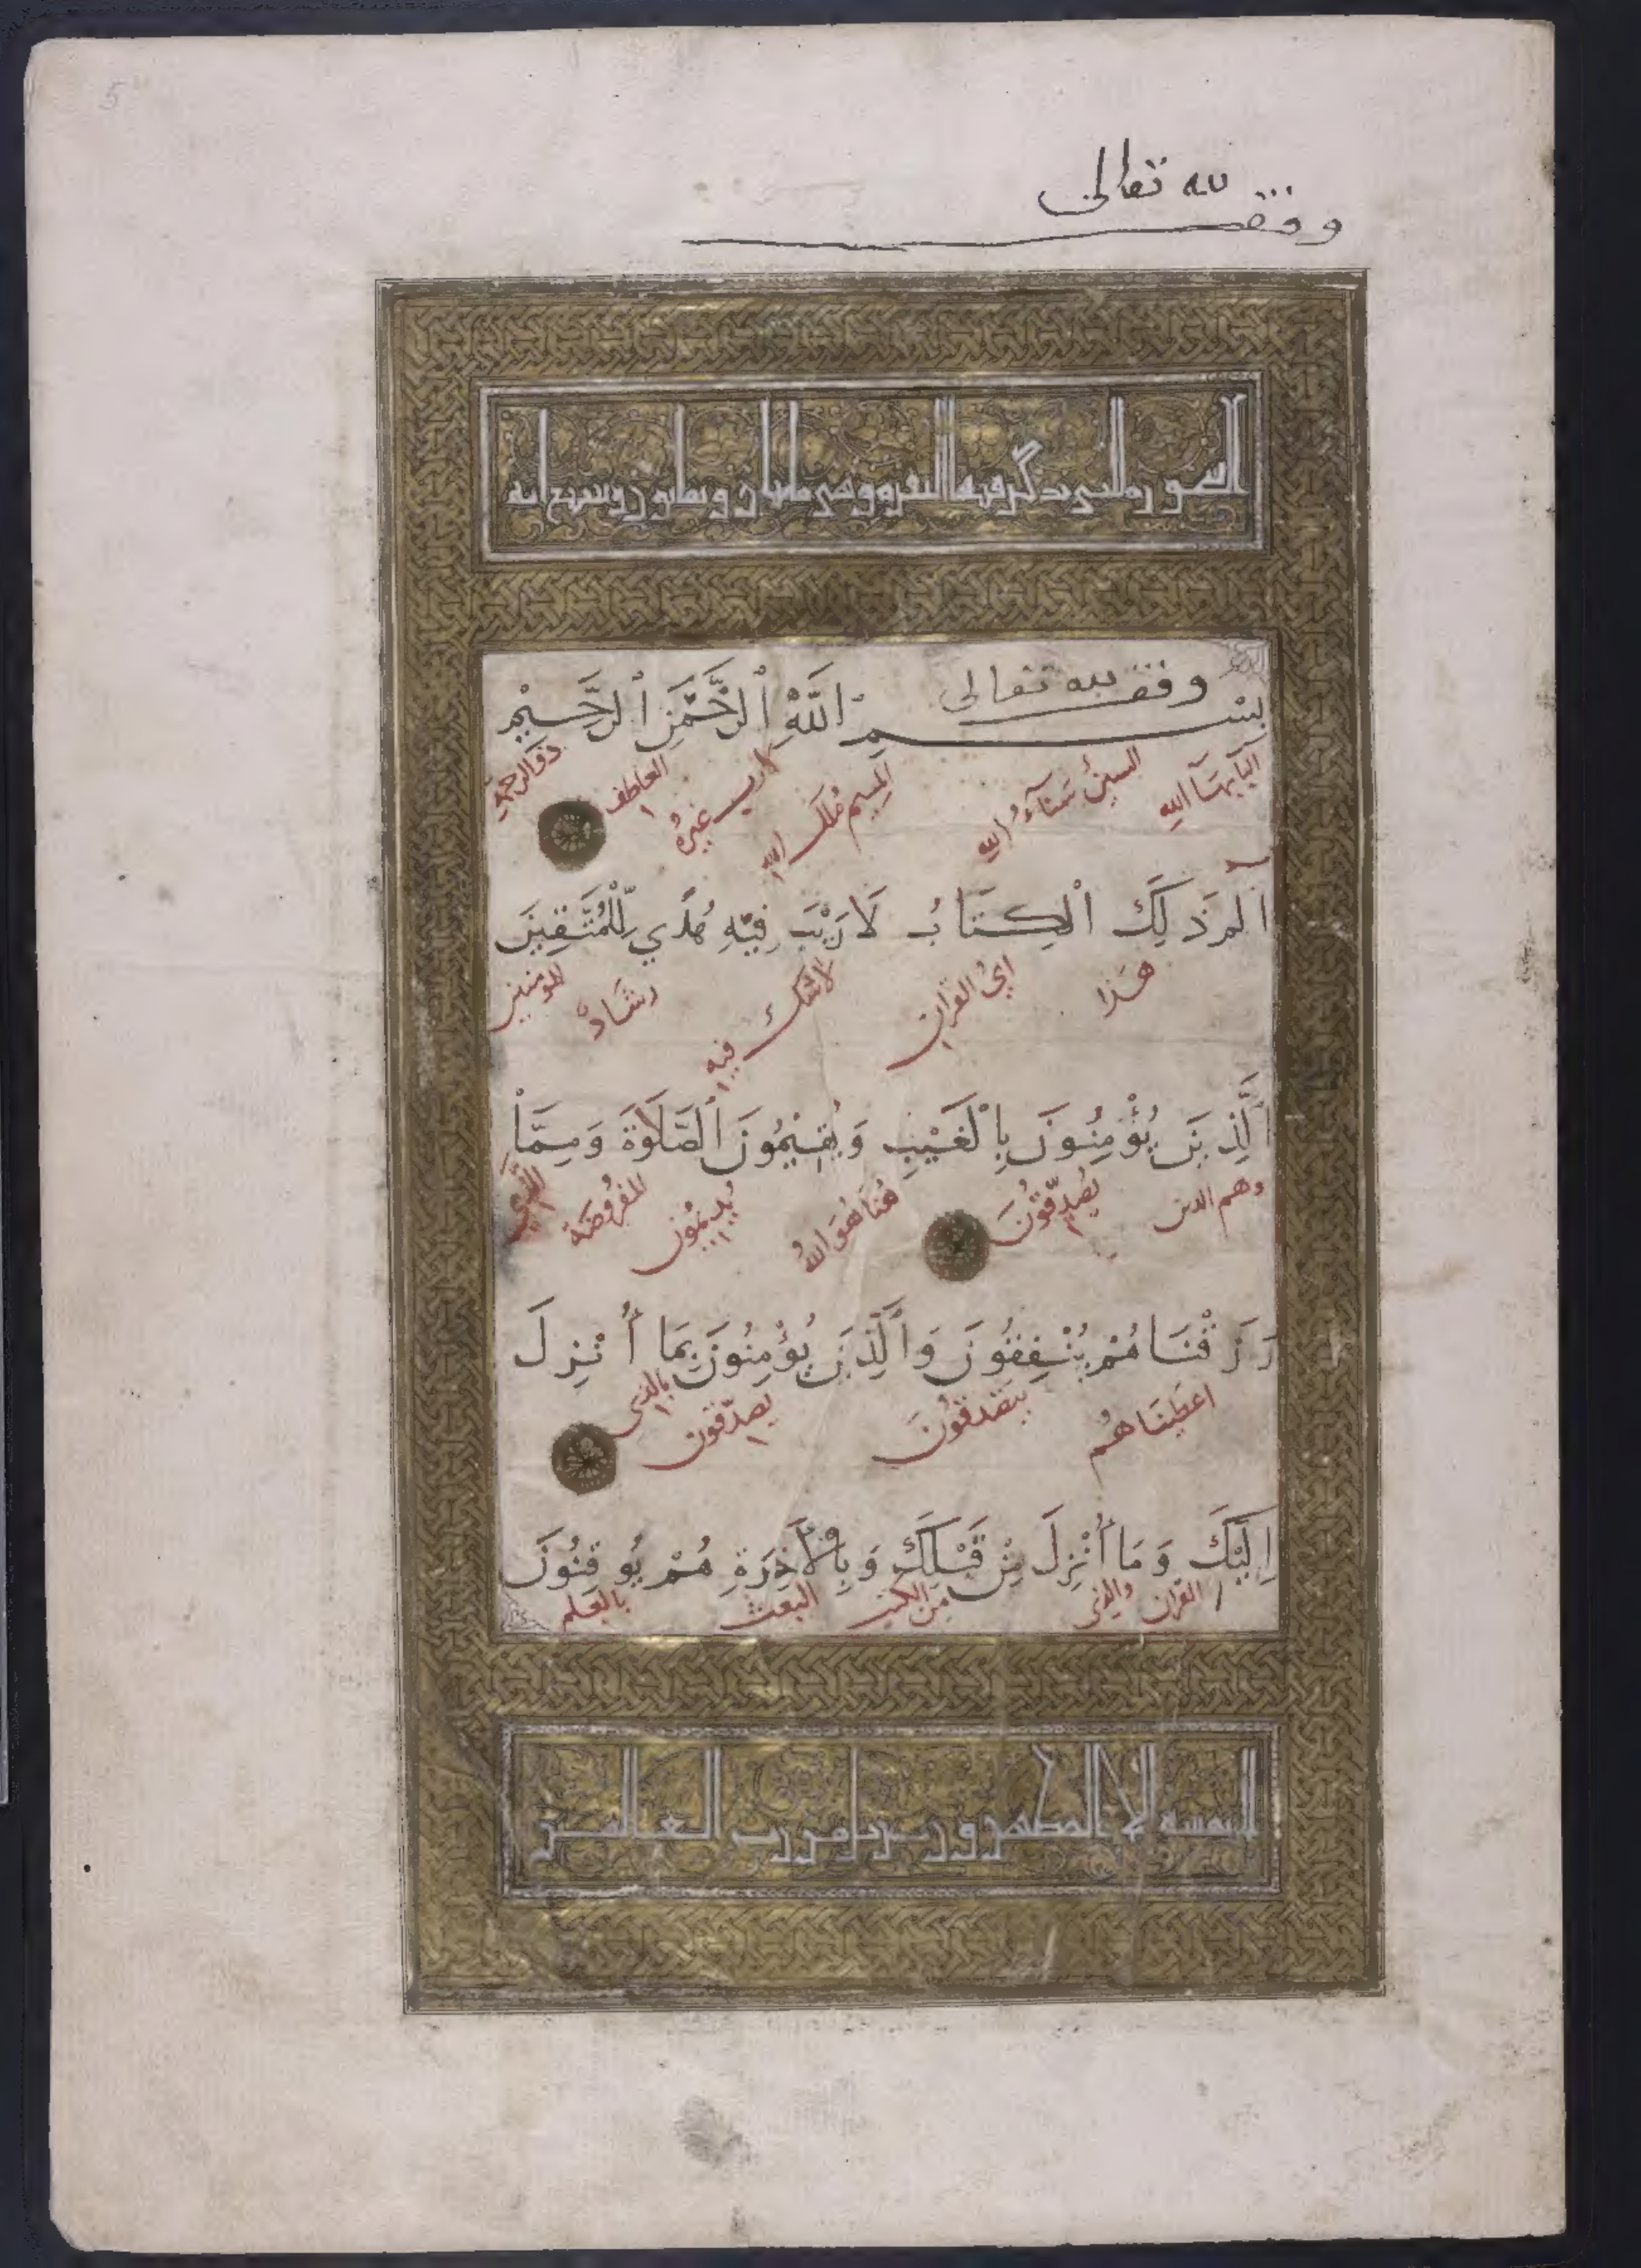 وقف لله تعالى
السورة التي تذكر فيها البقرة وهي مائتان وثمانون وسبع آية
وقف لله تعالى
بِسْمِ اللَّهِ الرَّحْمَنِ الرَّحِيمِ
البا بهآ الله السين سنآء الله الميم ملك الله لا رب غيره العاطف ذو الرحمة
الم ذَلِكَ الْكِتَابُ لَا رَيْبَ فِيهِ هُدًي لِّلْمُتَّقِينَ
هذا اي القران لا شك فيه رشاد للمومنين
الَّذِينَ يُؤْمِنُونَ بِالْغَيْبِ وَيُقِيمُونَ الصَّلَاوةَ وَمِمَّا
وهم الدين يصدّقون هنا هو الله يديمون المفروضة الّذي
رَزَقْنَاهُمْ يُنْفِقُونَ وَالَّذِينَ يُؤْمِنُونَ بِمَا أُنْزِلَ
اعطيناهم يتصدقون يصدّقون بالذي
إِلَيْكَ وَمَا أُنْزِلَ مِنْ قَبْلِكَ وَبِالْآخِرَةِ هُمْ يُوقِنُونَ
القران والذي من الكتب البعث بالعلم
لا يمسه إلا المطهرون تنزيل من رب العالمين